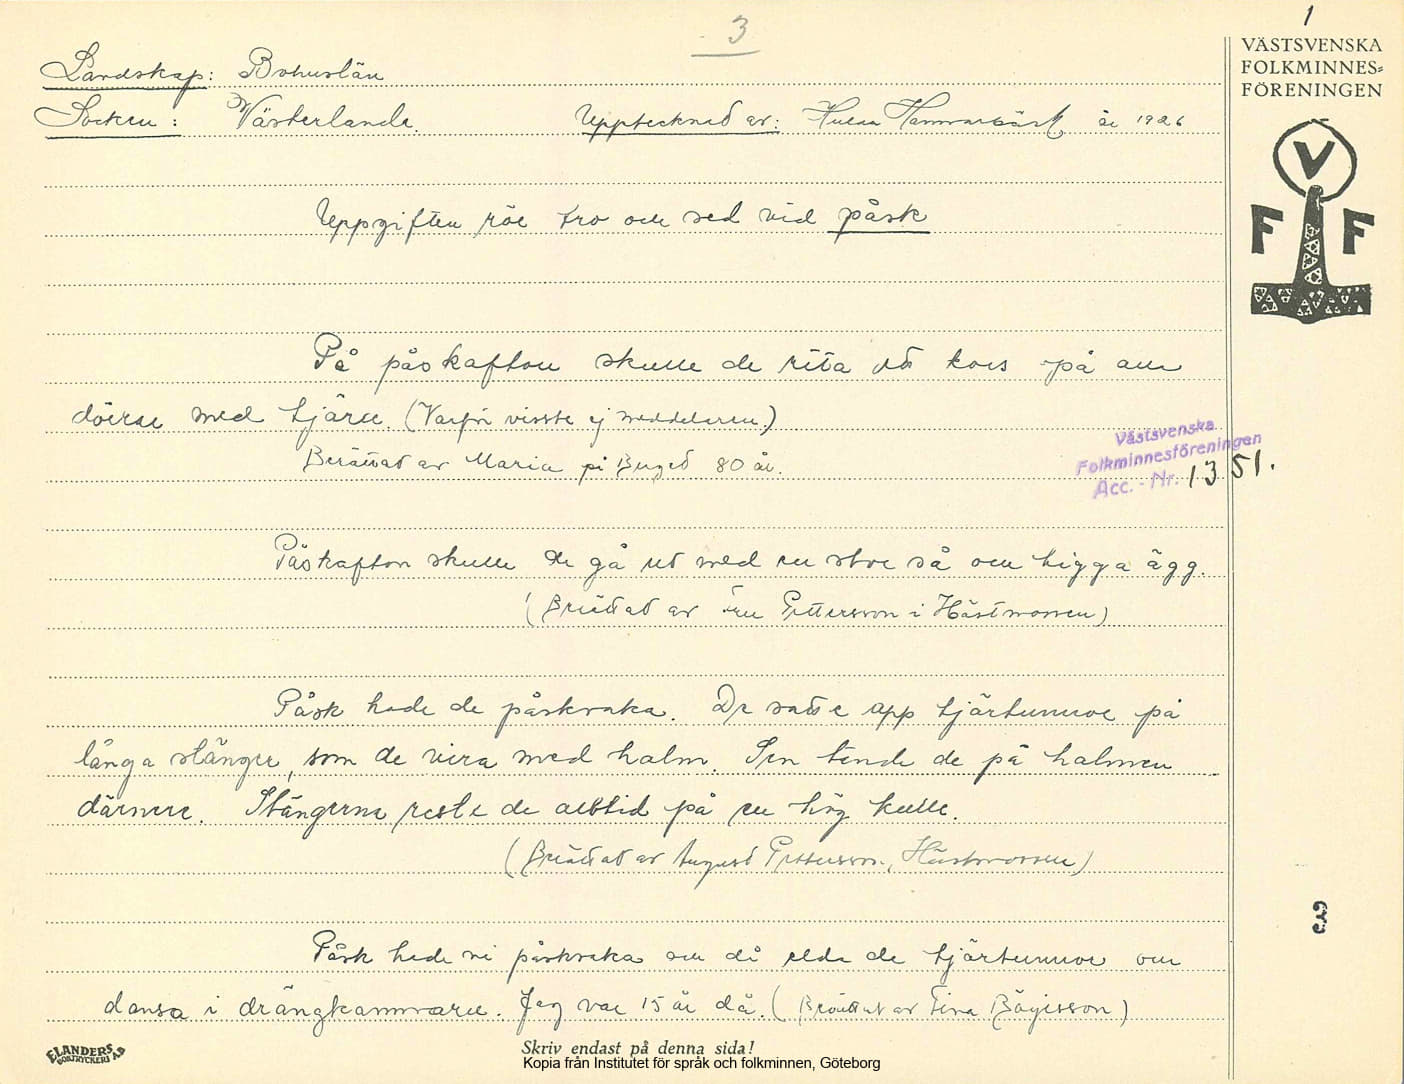 3
1
VÄSTSVENSKA
FOLKMINNES=
FÖRENINGEN
V
F F
Landskap: Bohuslän
Socken: Västerlanda. Upptecknad av: Hammarbäck år 1926
Uppgifter rör. tro och sed vid påsk
På påskafton skulle de rita ett kors på alla
dörrar med tjära. (Varför visste ej meddelaren.)
Berättat av Maria på Berget 80 år.
Västsvenska
Folkminnesföreningen
Acc. - Nr. 1351.
Påskafton skulle de gå ut med en stor så och tigga ägg.
(Berättat av Fru Pettersson i Hästmossen)
Påsk hade de påskvaka. De satte opp tjärtunnor på
långa stänger, som de vira med halm. Sen tände de på halmen
därnere. Stängerna reste de alltid på en hög kulle.
(Berättat av August Pettersson, Hästmossen)
Påsk hade vi påskvaka och då elda de tjärtunnor och
dansa i drängkammaren. Jag var 15 år då. (Berättat av Tina)
3
ELANDERS
BOKTRYCKERI AB
Skriv endast på denna sida!
Kopia från Institutet för språk och folkminnen, Göteborg